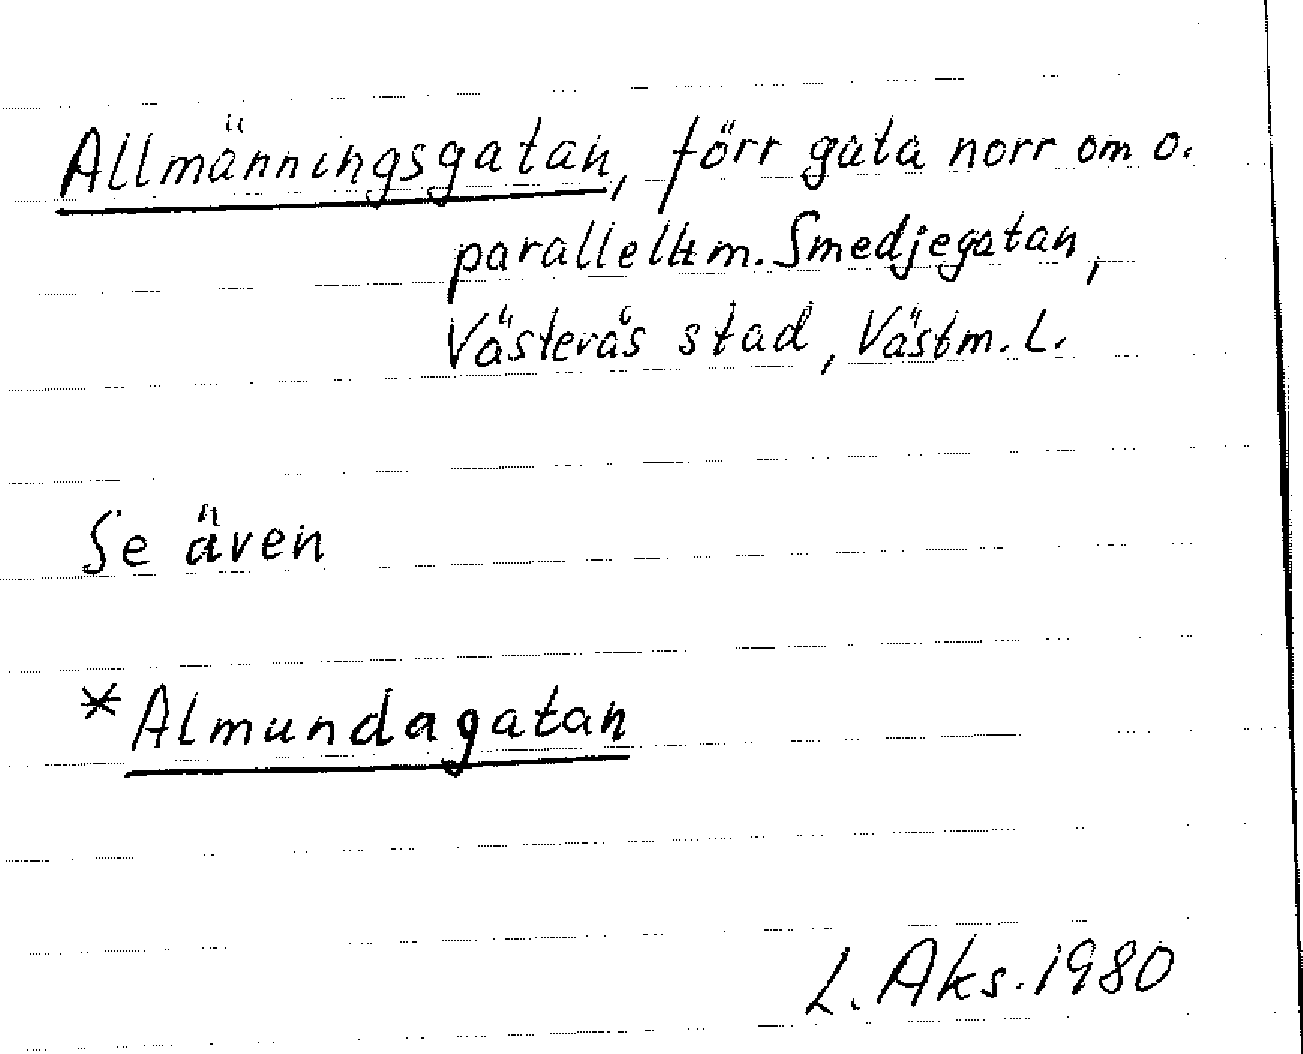 Allmänningsgatan, förr gata norr om o.
parallellt m. Smedjegatan,
Västerås stad, Västm. L.
Se även
*Almundagatan
L. Aks. 1980